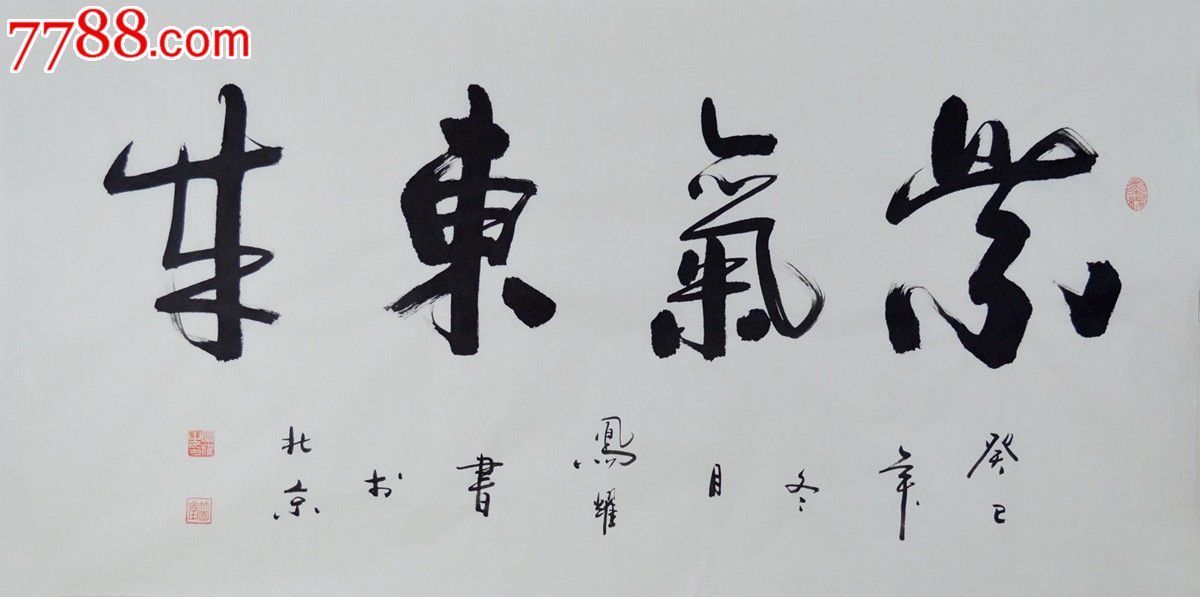 7788.com
紫氣東來
癸巳年冬月鳳耀書於北京